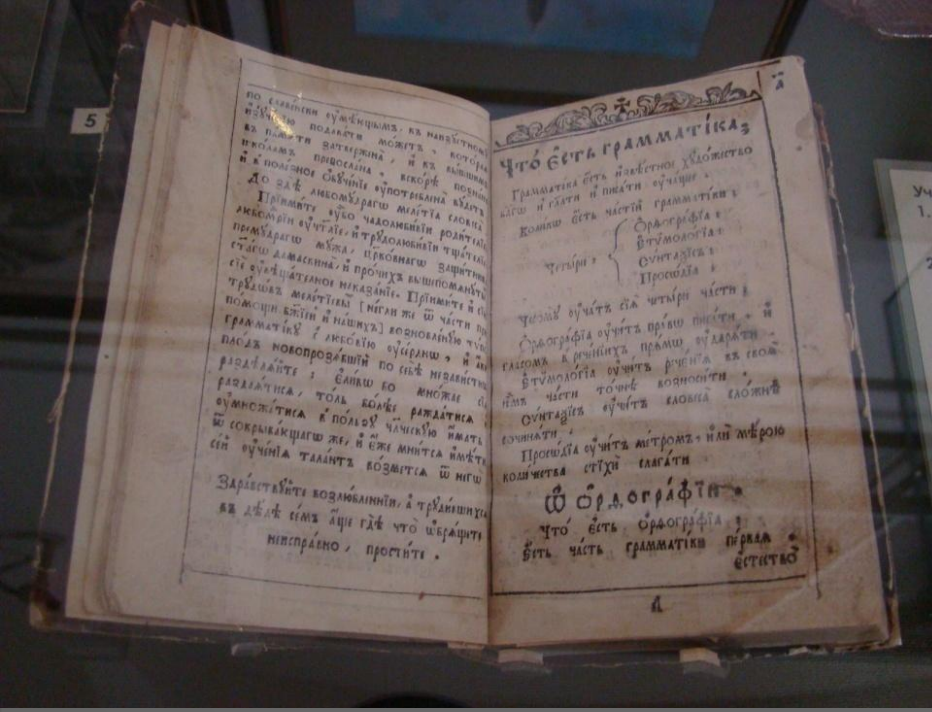 5
по славенски ᲂумѣющымъ, къ наизустному
изученїю подавати можетъ, котораѧ
въ памѧти затвержена, и къ вышшимъ
школамъ
и въ полезное ѻбученїе ᲂупотреблена будетъ
До здѣ любомудрагѡ мелетїа словеса
Прїимите ᲂубо чадолюбивїи родителїе
и трудолюбивїи тщателїе
премудрагѡ мужа, црковнагѡ защитника
дамаскина, и прочихъ вышепомѧнутых
сїе ᲂувѣщателное наказанїе. Прїимите и сїю
трудѡвъ мелетїевы [негли же ѿ части при
помощи бжїей и нашихъ] возновленую
грамматїку с любовїю ᲂусерднѡ, и ѧкѡ
плодъ новопрозѧбшїй по себѣ независтно
раздѣлѧйте: Еликѡ бо множае сїѧ
раздаѧтисѧ, толь болѣе раждатисѧ и
ᲂумножатисѧ в пользу члческую имать
ѿ сокрывающагѡ же, и еже мнитсѧ имѣти
сей ᲂученїѧ талантъ возметсѧ ѿ негѡ
Здравствуйте возлюбленнїи, а трудившихсѧ
въ дѣлѣ семъ аще гдѣ что ѡбрѧщете
неисправно, простите.
а҃
Что́ є́сть грамматі́ка;
Грамматїка есть извѣстное художество
благѡ и глати и писати ᲂучащее.
Коликѡ есть частїй грамматїки;
Ѻрѳографїа.
Етѷмологїа.
Четыри. Сѷнтаѯїсъ.
Просѡдїа.
Чесому ᲂучатъ сїѧ четыри части;
Ѻрѳографїа ᲂучитъ правѡ писати, и
гласомъ в реченїихъ прѧмѡ ᲂударѧти.
Етѷмологїа ᲂучитъ реченїѧ въ своѧ
имъ части точнѣ возносити.
Сѷнтаѯїсъ ᲂучитъ словеса сложнѣ
сочинѧти.
Просѡдїа ᲂучитъ метромъ, или мѣрою
количества стїхи слагати.
Ѿ Ѻрѳографїи.
Что есть ѻрѳографїа;
Есть часть грамматїки первая.
естество
А
Уч
1.